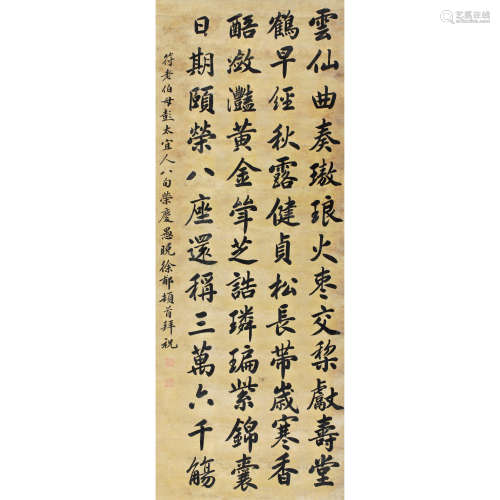 雲仙曲奏璈琅火棗交梨獻壽堂
鶴早經秋露健貞松長帶歲寒香
醅潋灩黃金聳芝誥璘㻞紫錦囊
日期頤榮八座還稱三萬六千觴
符老伯母彭太宜人八旬榮慶愚晚徐郙頓首拜祝